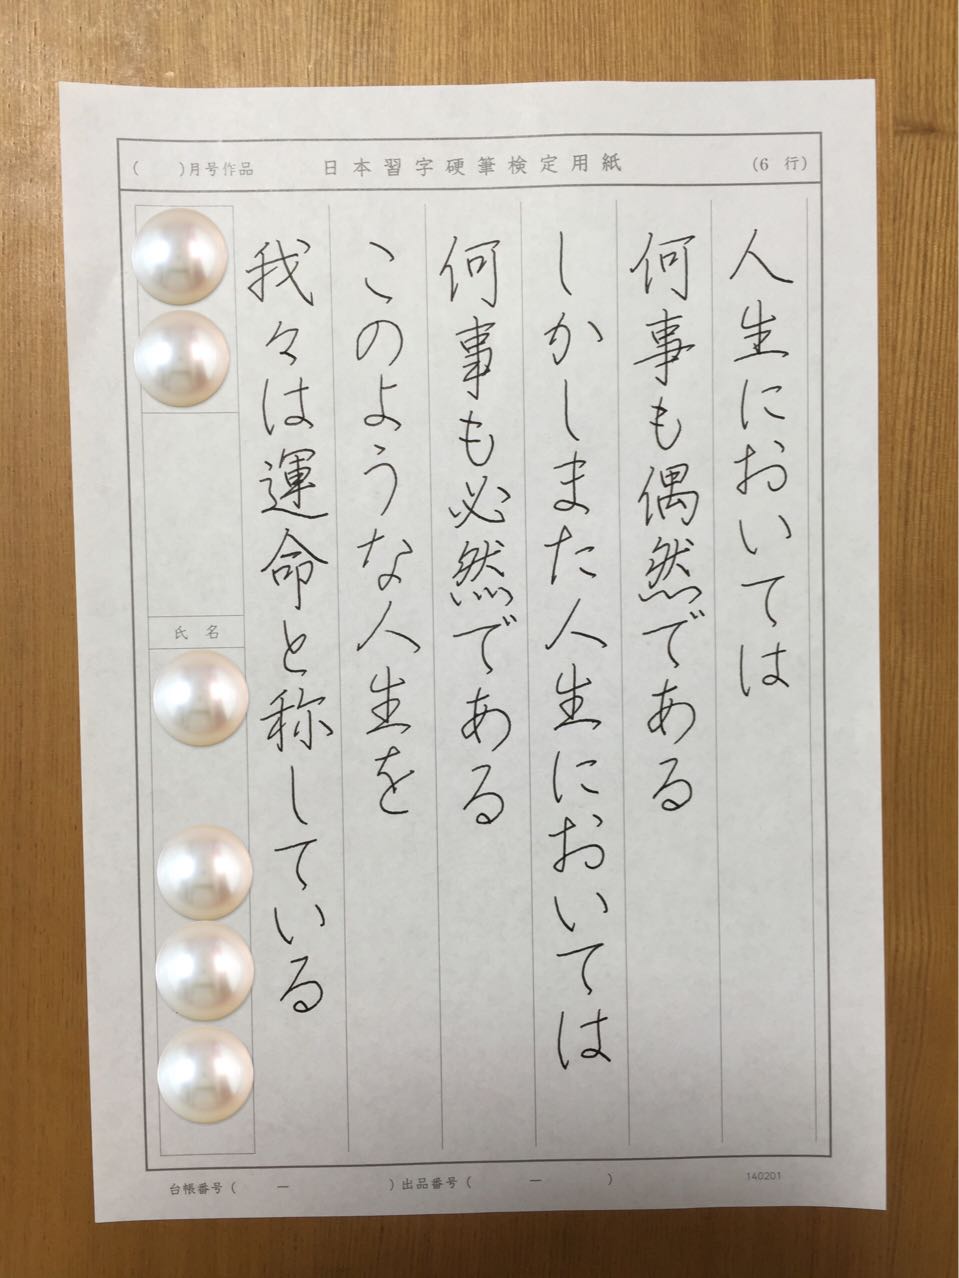 ( )月号作品 日本習字硬筆検定用紙 (6 行)
人生においては
何事も偶然である
しかしまた人生においては
何事も必然である
このような人生を
我々は運命と称している
氏名
台帳番号( ー )出品番号( ー )
140201